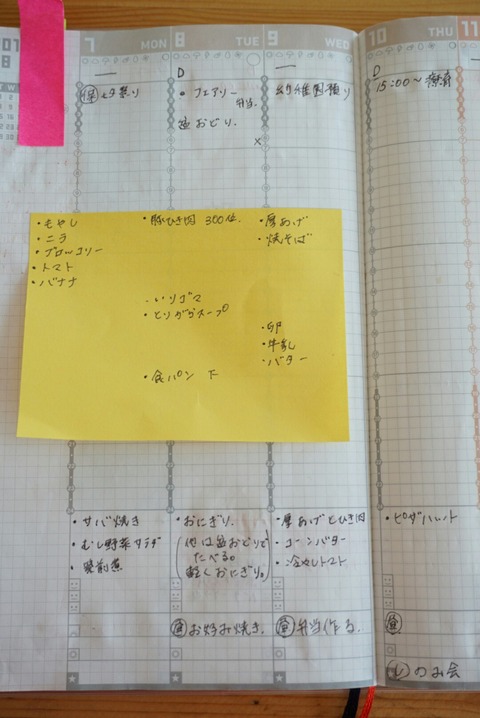 7 MON
8 TUE
9 WED
10 THU
11
D
D
㋭七夕祭り
・フェアリー
弁当。
盆おどり。
15:00〜療育
×
・もやし
・ニラ
・ブロッコリー
・トマト
・バナナ
・豚ひき肉 300位。
・いりゴマ
・とりがらスープ
・食パン 下
・厚あげ
・焼そば
・卵
・牛乳
・バター
・サバ焼き
・むし野菜サラダ
・筑前煮
・おにぎり。
(他は盆おどりで
たべる。
軽くおにぎり。)
・厚あげとひき肉
・コーンバター
・冷やしトマト
・ピザハット
昼 お好み焼き。
昼 弁当作る。
昼
し のみ会